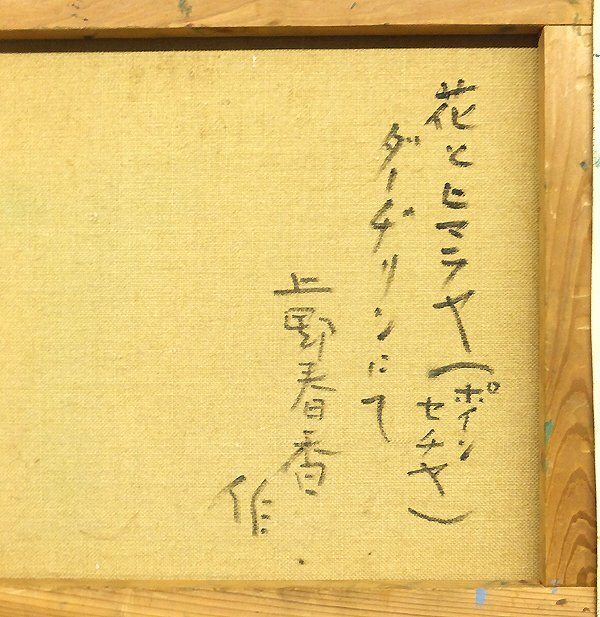 花とヒマラヤ（ポインセチヤ）
ダージリンにて
上野春香
作